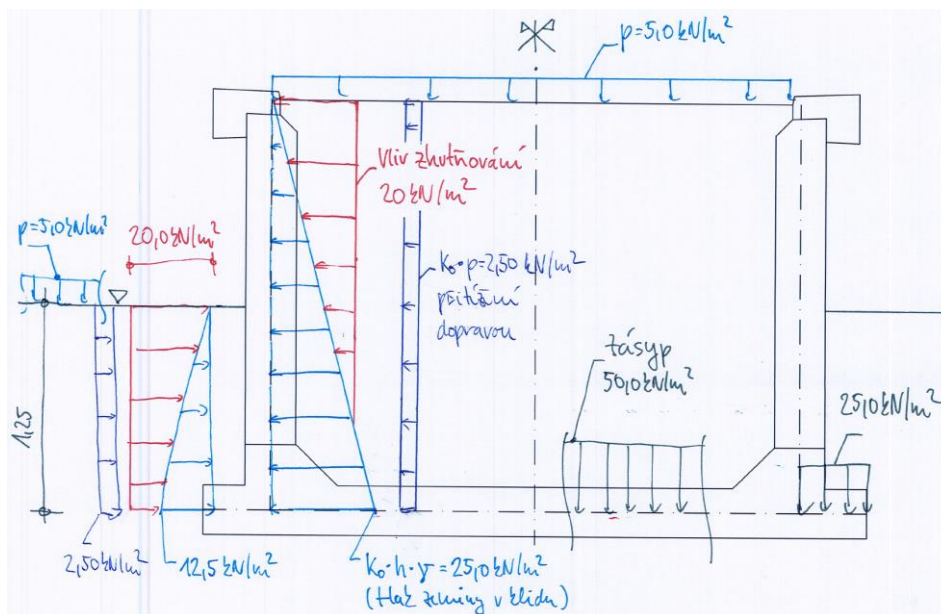 p=5,0 kN/m²
Vliv zhutňování
20 kN/m²
p=5,0 kN/m²
20,0 kN/m²
K₀·p=2,50 kN/m²
přitížení
dopravou
zásyp
50,0 kN/m²
25,0 kN/m²
1,25
2,50 kN/m²
12,5 kN/m²
K₀·h·γ = 25,0 kN/m²
(tlak zeminy v klidu)